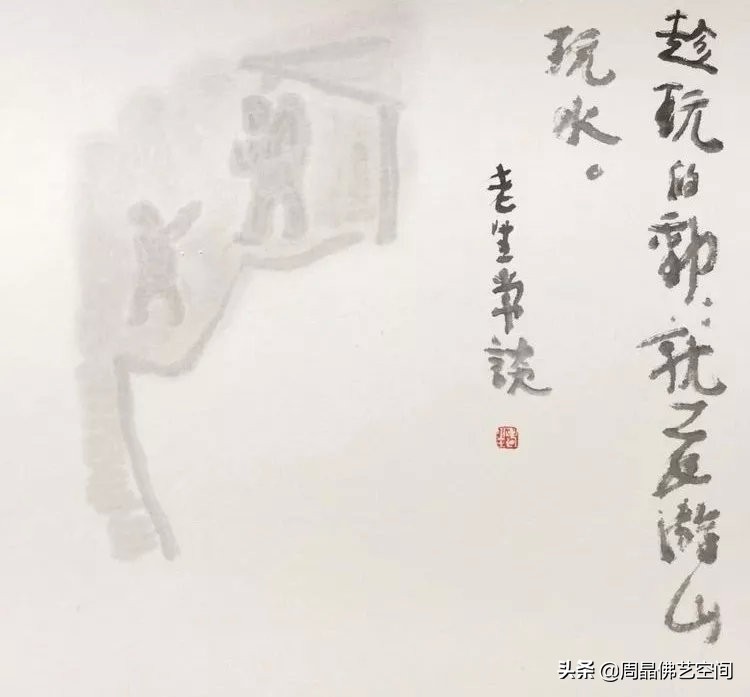 趁玩的動，就一直游山
玩水。
老生常談
头条 @周晶佛艺空间